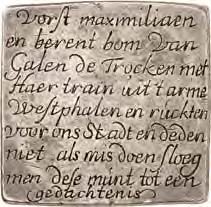 Vorst maximiliaen
en berent bom Van
Galen de Trocken met
Haer train uit t arme
Westphalen en ruckten
voor ons Stadt en deden
niet als mis doen sloeg
men dese munt tot een
gedachtenis